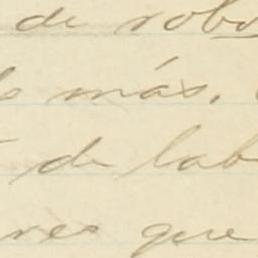 de robo
más.
de lab
res que